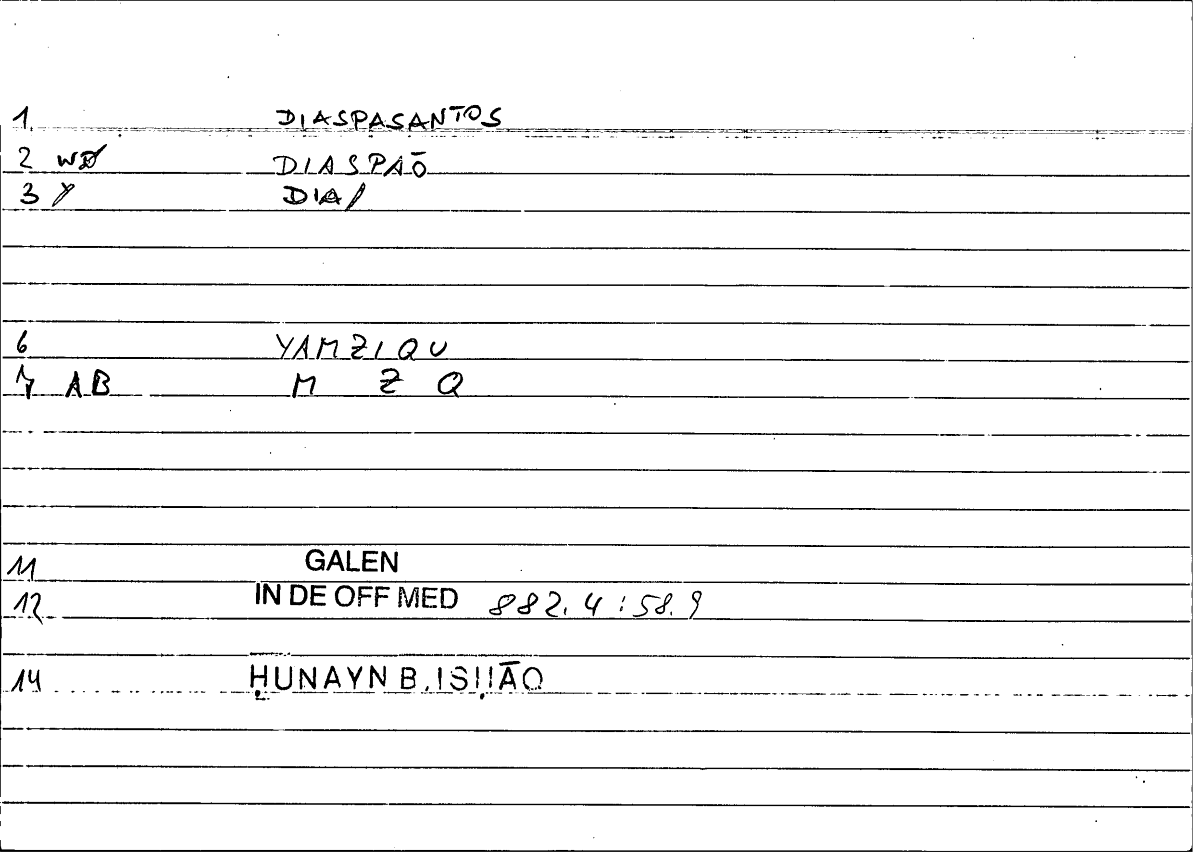 1. DIASPASANTOS
2 WD DIASPAŌ
3 Y DIA/
6 YAMZIQU
7 AB M Z Q
11 GALEN
12 IN DE OFF MED 882.4:58.9
14 ḤUNAYN B. ISḤĀQ